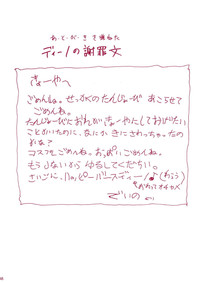 あとがきで重ねた
ディーノの謝罪文
きょーやへ
ごめんねぇ。せっかくのたんじょーび おこらせて
ごめんね。
たんじょーびにおれがきょーやにしておげたい
ことがいたのに、なにか きにさわっちゃったの
かな?
コスプレごめんね。おっぱいごめんね。
もうしないから ゆるしてくだちい。
さいごに、ハッピーバースディー♪(わらう)
でぃの